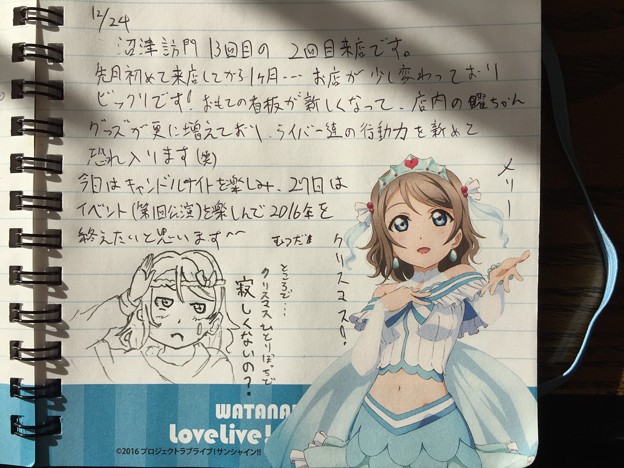 12/24
沼津訪問13回目の 2回目来店です。
先月初めて来店してから1ヶ月… お店が少し変わっており
ビックリです! おもての看板が新しくなって、店内の曜ちゃん
グッズが更に増えており、ライバー達の行動力を改めて
恐れ入ります(笑)
今日はキャンドルナイトを楽しみ、27日は
イベント(第1回公演)を楽しんで2016年を
終えたいと思います^^
むつだま
メリー
クリスマス!
ところで…
クリスマスひとりぼっちで
寂しくないの?
WATANA
LoveLive!
©2016 プロジェクトラブライブ!サンシャイン!!